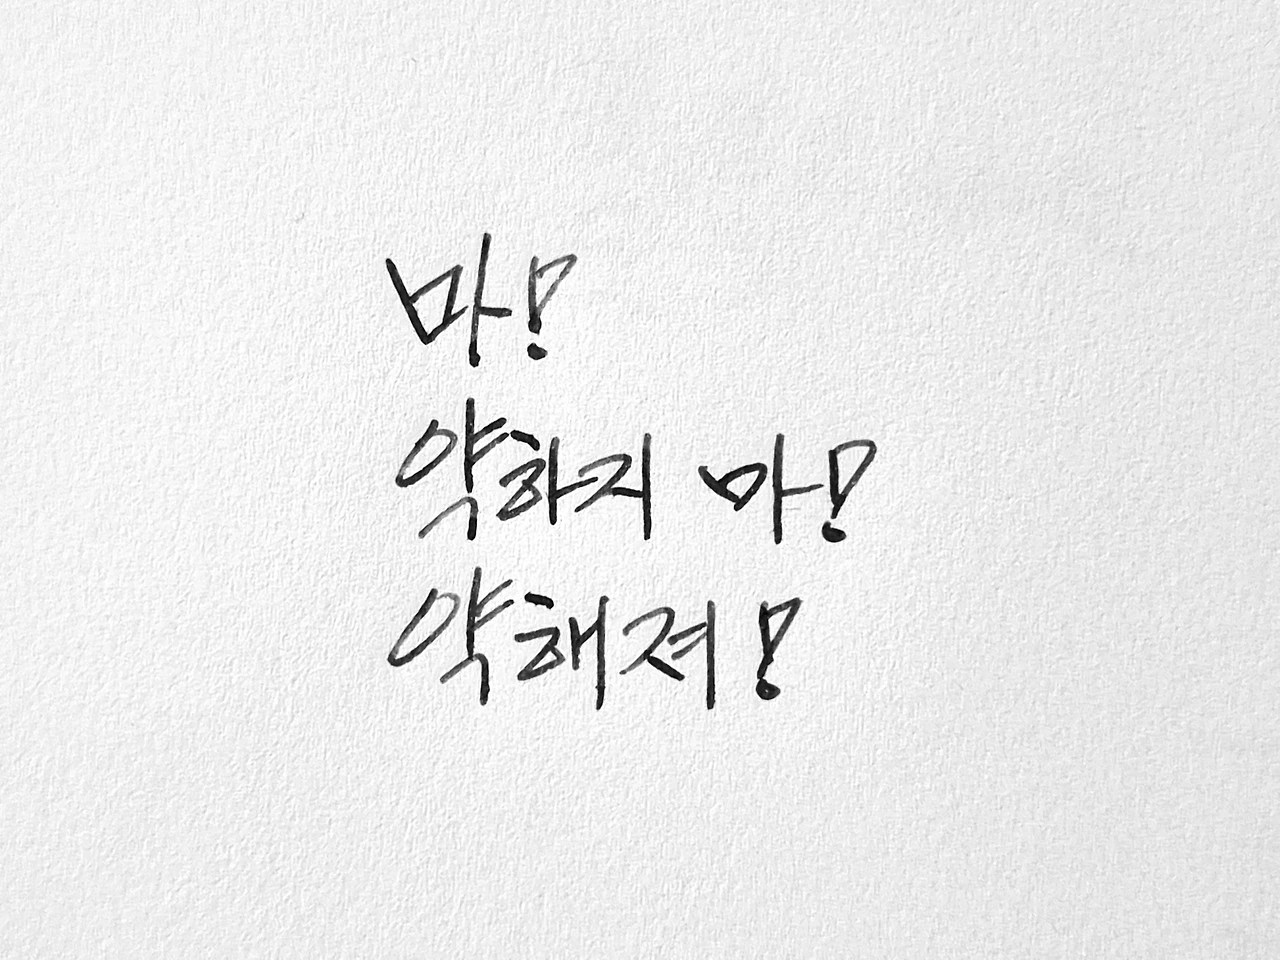 마!
약하지 마!
약해져!